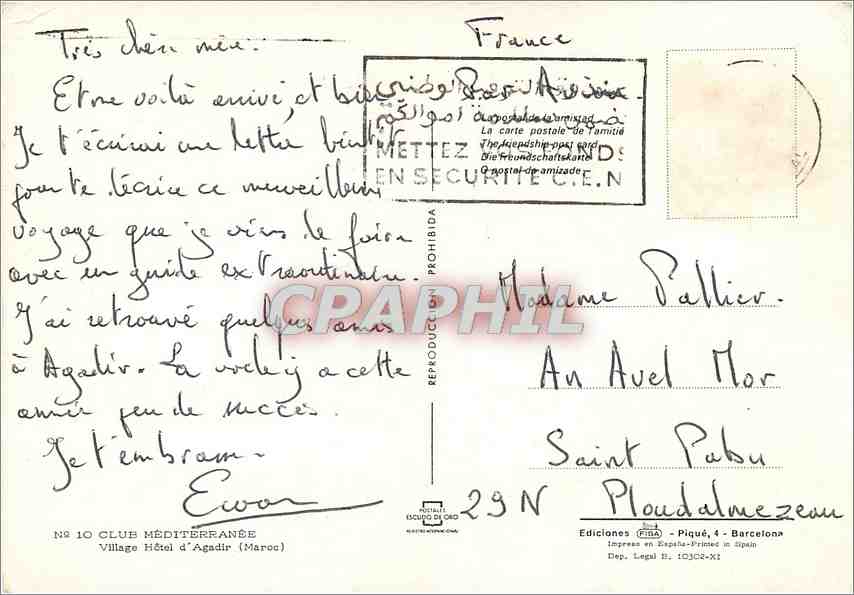 Très chère mère.
Et me voilà arrivé, et bien
Je t'écrirai une lettre bientôt
pour te décrire ce merveilleux
voyage que je viens de faire
avec un guide extraordinaire.
J'ai retrouvé quelques amis
à Agadir. La voile y a cette
année peu de succès.
Je t'embrasse.
Ewan
Nº 10 CLUB MÉDITERRANÉE
Village Hôtel d'Agadir (Maroc)
France
Par Avion
La postal de la amistad
La carte postale de l'amitié
The friendship post card
Die Freundschaftskarte
O postal da amizade
METTEZ VOS FONDS
EN SECURITE C.E.N
REPRODUCCION PROHIBIDA
CPAPHIL
Madame Pallier.
An Avel Mor
Saint Pabu
29N Ploudalmezeau
POSTALES
ESCUDO DE ORO
Ediciones FISA - Piqué, 4 - Barcelona
Impreso en España-Printed in Spain
Dep. Legal B. 10302-XI